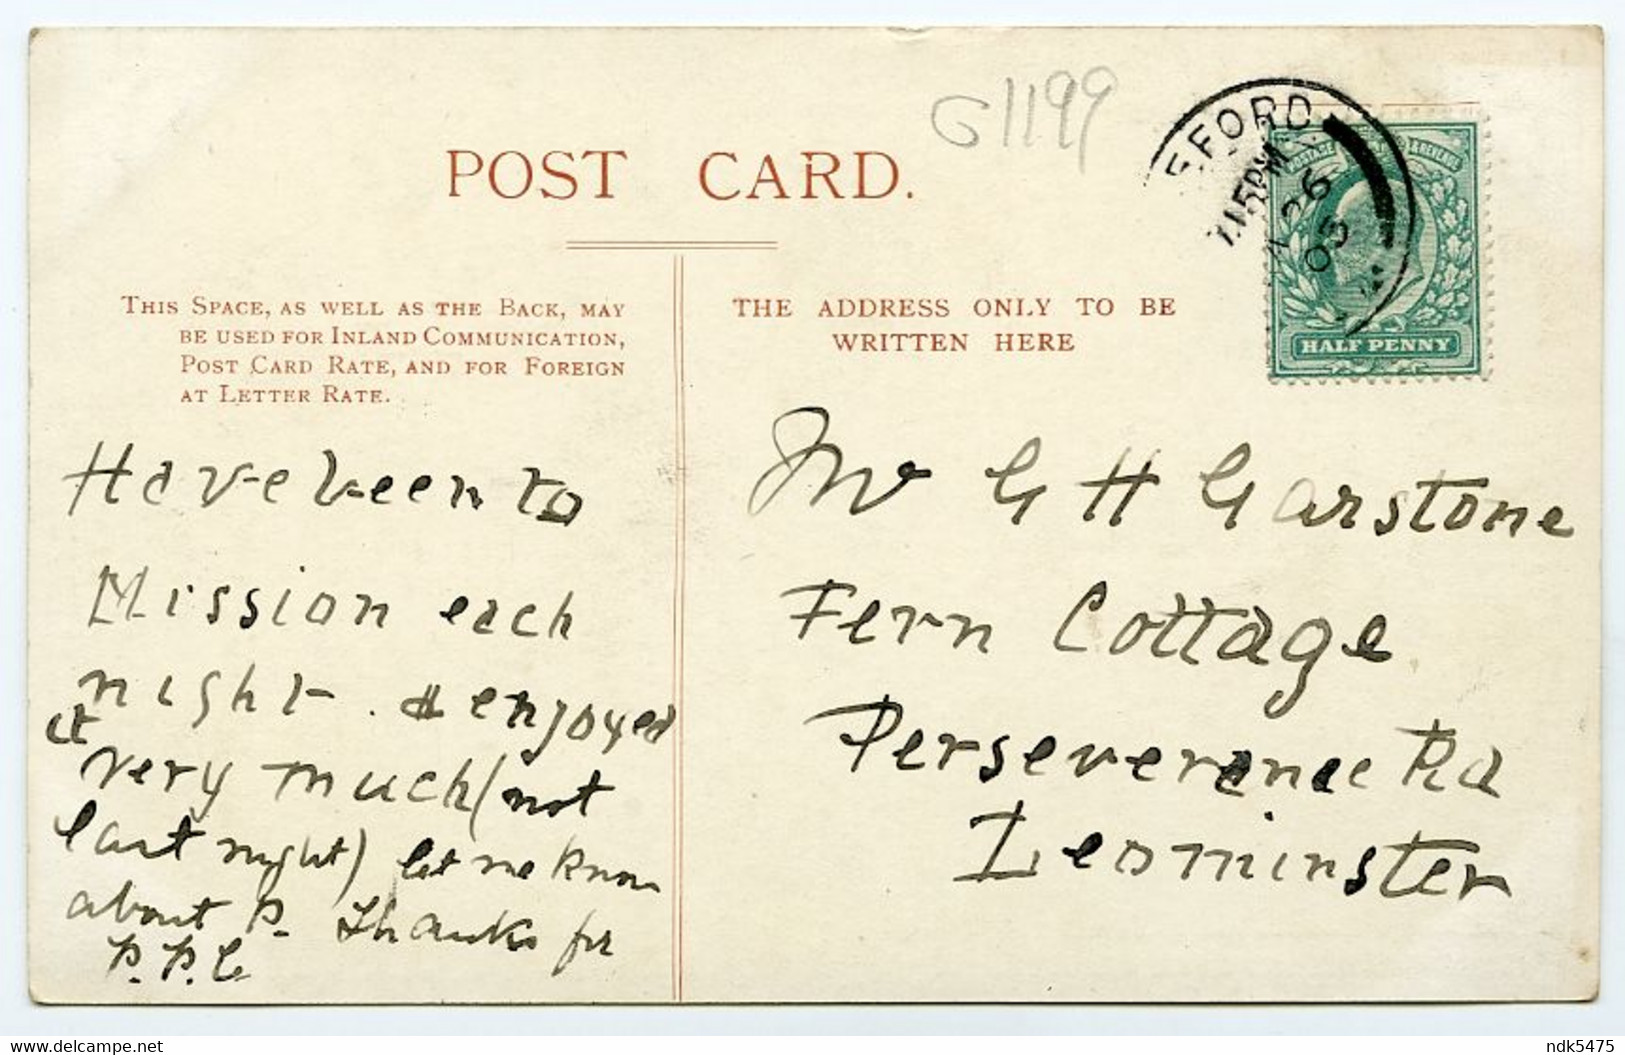 G1199
POST CARD.
EFORD
7.15PM
26
05
POSTAGE & REVENUE
HALF PENNY
THIS SPACE, AS WELL AS THE BACK, MAY
BE USED FOR INLAND COMMUNICATION,
POST CARD RATE, AND FOR FOREIGN
AT LETTER RATE.
THE ADDRESS ONLY TO BE
WRITTEN HERE
Have been to
Mission each
night. & enjoyed
it very much (not
last night) let me know
about P. Thanks for
P.P.C
Mr G H Garstone
Fern Cottage
Perseverance Rd
Leominster
delcampe.net
ndk5475